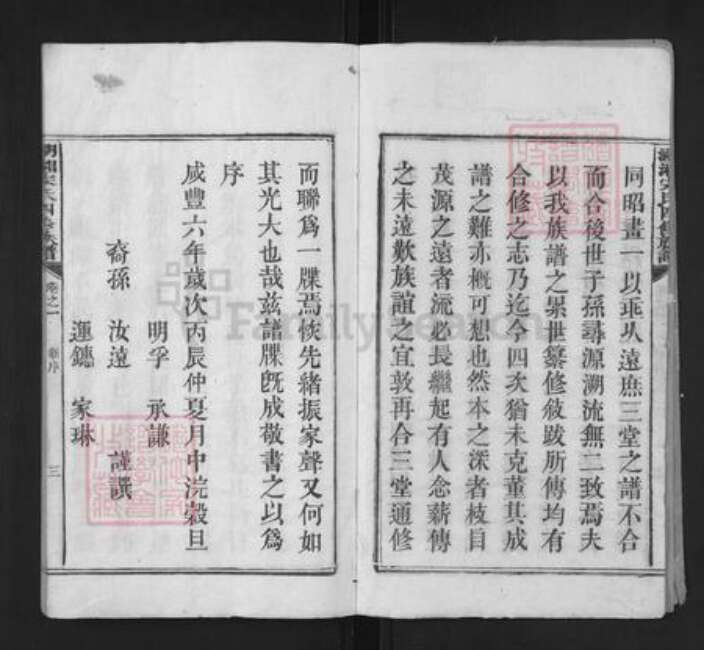 同昭畫一以垂久遠庶三堂之譜不合
而合後世子孫尋源溯流無二致焉夫
以我族譜之累世纂修敘跋所傳均有
合修之志乃迄今四次猶未克董其成
譜之難亦概可想也然本之深者枝自
茂源之遠者流必長繼起有人念薪傳
之未遠歎族誼之宜敦再合三堂通修
而聯為一牒焉恢先緒振家聲又何如
其光大也哉茲譜牒既成敬書之以為
序
咸豐六年歲次丙辰仲夏月中浣穀旦
明孚 承謙
裔孫 汝遠 謹譔
運鏸 家琳
卷之一
序
三
FamilySearch